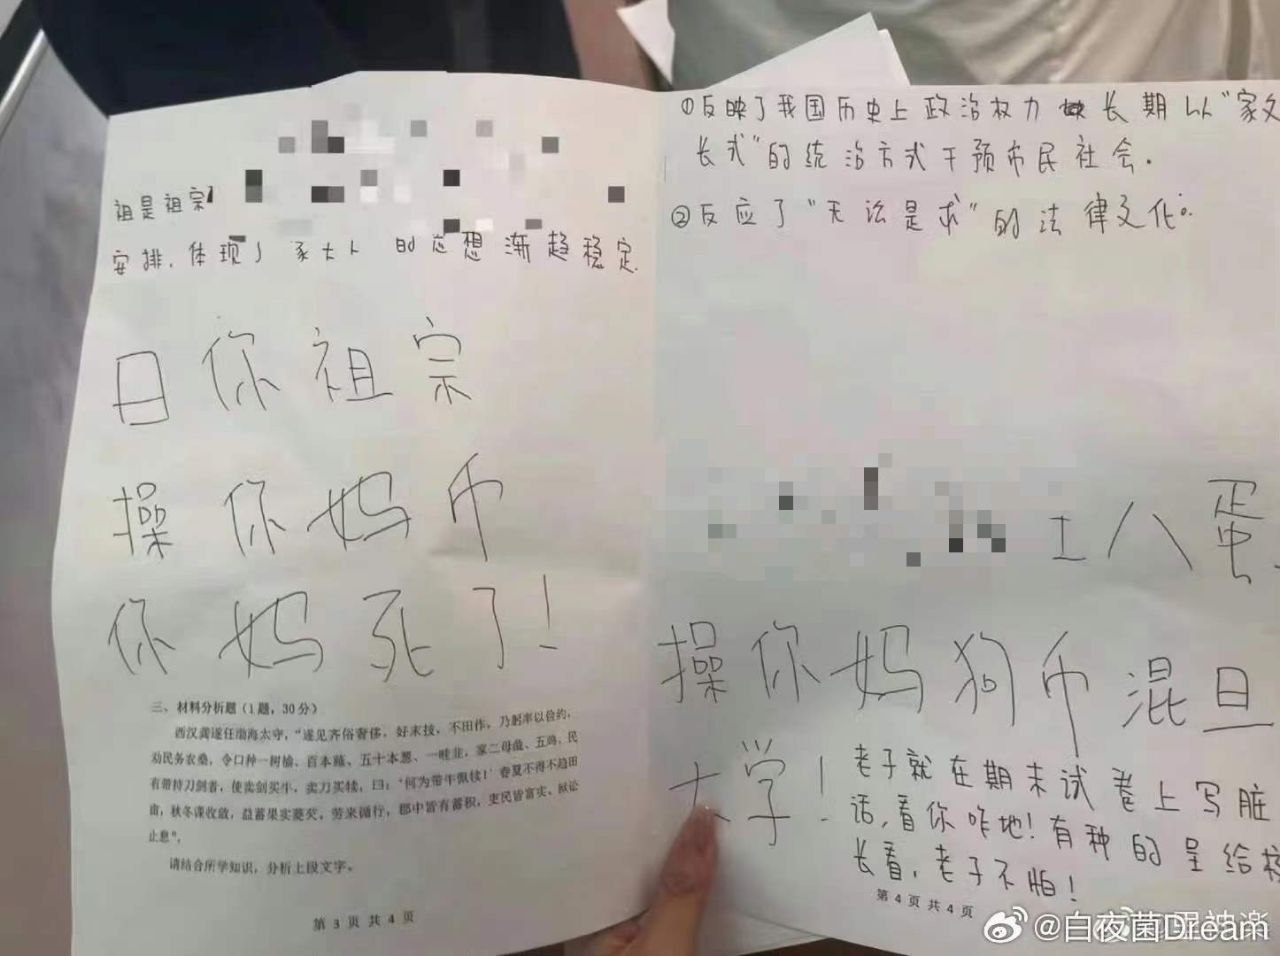 祖是祖宗
安排.体现了家大人的思想渐趋稳定.
日你祖宗
操你妈币
你妈死了!
三、材料分析题(1题,30分)
西汉龚遂任渤海太守,“遂见齐俗奢侈,好末技,不田作,乃躬率以俭约,
劝民务农桑,令口种一树榆、百本薤、五十本葱、一畦韭,家二母彘、五鸡。民
有带持刀剑者,使卖剑买牛,卖刀买犊,曰:‘何为带牛佩犊!’春夏不得不趋田
亩,秋冬课收敛,益蓄果实菱芡。劳来循行,郡中皆有蓄积,吏民皆富实。狱讼
止息”。
请结合所学知识,分析上段文字。
第 3 页 共 4 页
①反映了我国历史上政治权力长期以“家父
长式”的统治方式干预市民社会.
②反应了“无讼是求”的法律文化.
王八蛋.
操你妈狗币混旦
大学!
老子就在期末试卷上写脏
话,看你咋地!有种的呈给校
长看,老子不怕!
第 4 页 共 4 页
@白夜菌Dream